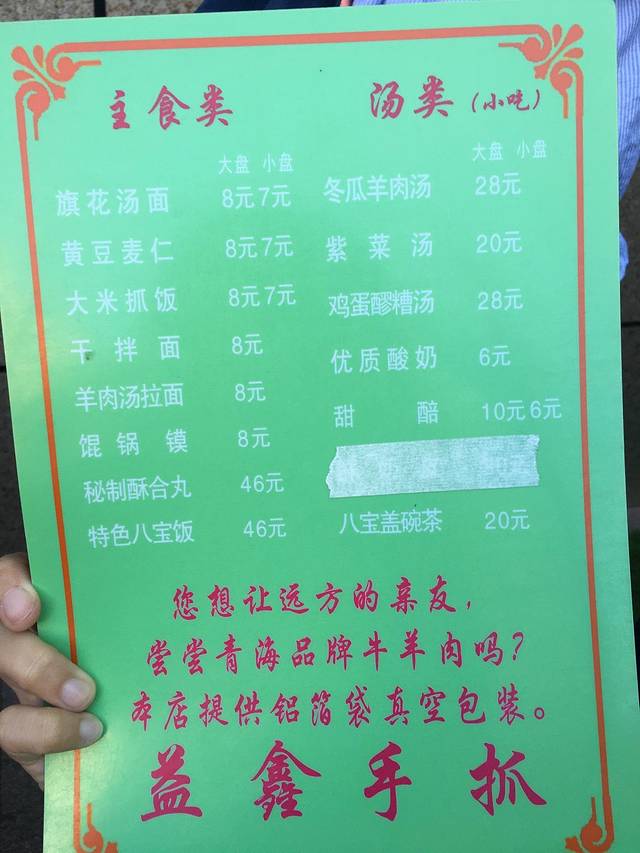 主食类
大盘 小盘
旗花汤面 8元 7元
黄豆麦仁 8元 7元
大米抓饭 8元 7元
干拌面 8元
羊肉汤拉面 8元
馄锅馍 8元
秘制酥合丸 46元
特色八宝饭 46元
汤类（小吃）
大盘 小盘
冬瓜羊肉汤 28元
紫菜汤 20元
鸡蛋醪糟汤 28元
优质酸奶 6元
甜醅 10元 6元
八宝盖碗茶 20元
您想让远方的亲友，
尝尝青海品牌牛羊肉吗？
本店提供铝箔袋真空包装。
益鑫手抓